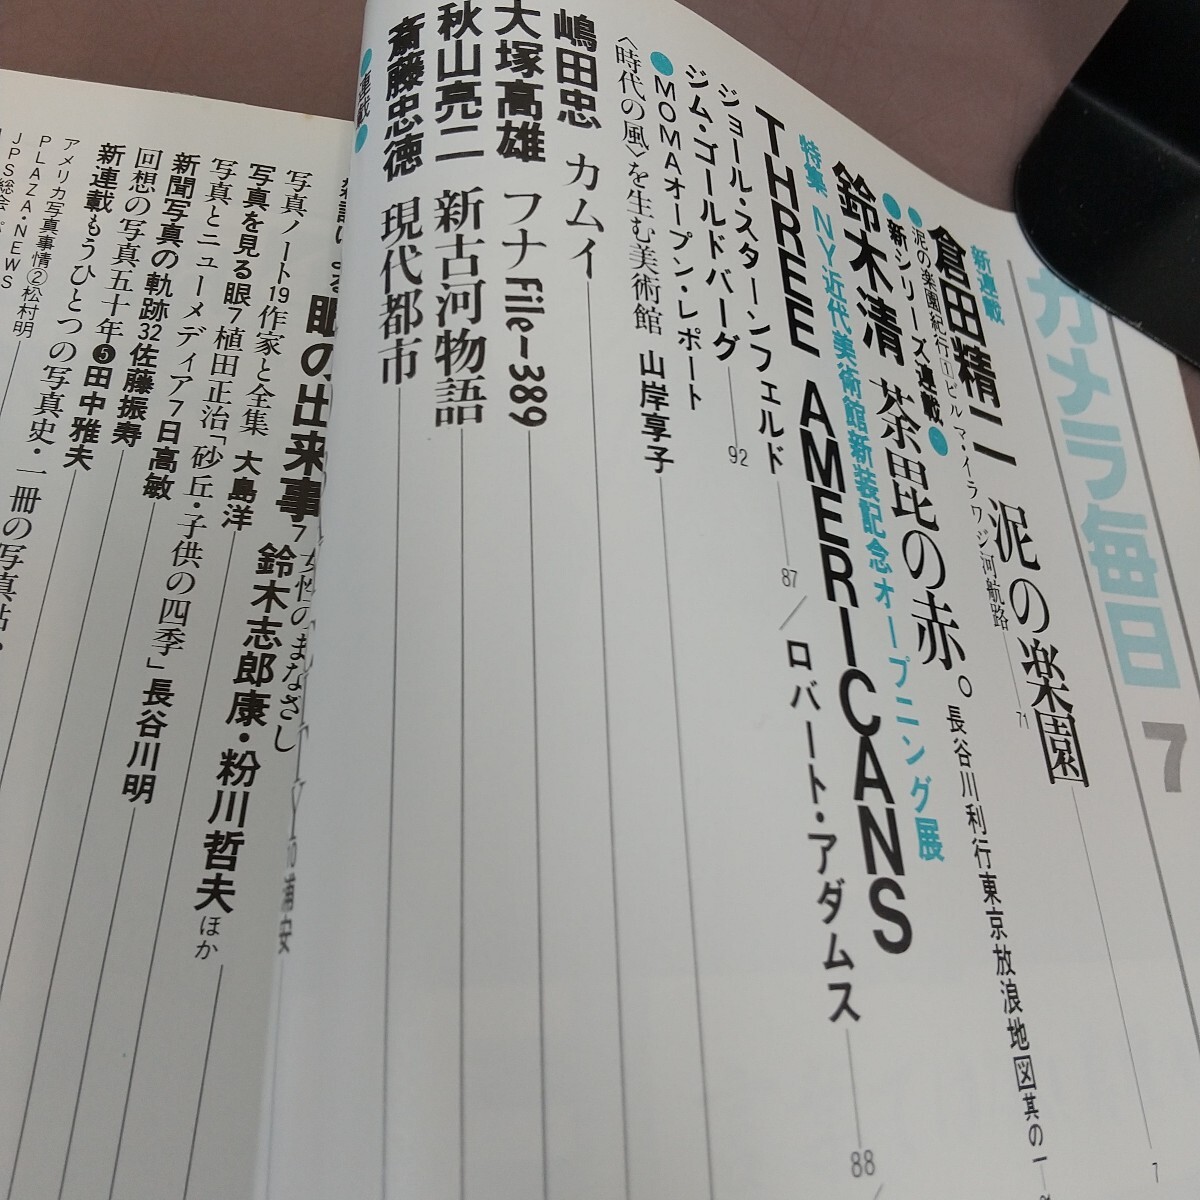 カメラ毎日 7
新連載
倉田精二 泥の楽園
7
泥の楽園紀行①ビルマ・イラワジ河航路
71
●新シリーズ連載●
鈴木清 荼毘の赤。
長谷川利行東京放浪地図其の一
特集 NY近代美術館新装記念オープニング展
THREE AMERICANS
ロバート・アダムス
88
ジョール・スターンフェルド
87
ジム・ゴールドバーグ
92
●MOMAオープン・レポート
〈時代の風〉を生む美術館 山岸享子
嶋田忠 カムイ
大塚高雄 フナFile-389
秋山亮二 新古河物語
斎藤忠徳 現代都市
●連載●
浦安
眼の出来事7
女性のまなざし
鈴木志郎康・粉川哲夫ほか
写真ノート19作家と全集 大島洋
写真を見る眼7植田正治「砂丘・子供の四季」長谷川明
写真とニューメディア7日高敏
新聞写真の軌跡32佐藤振寿
回想の写真五十年❺田中雅夫
新連載もうひとつの写真史・一冊の写真帖・
アメリカ写真事情②松村明
PLAZA・NEWS
JPS総会